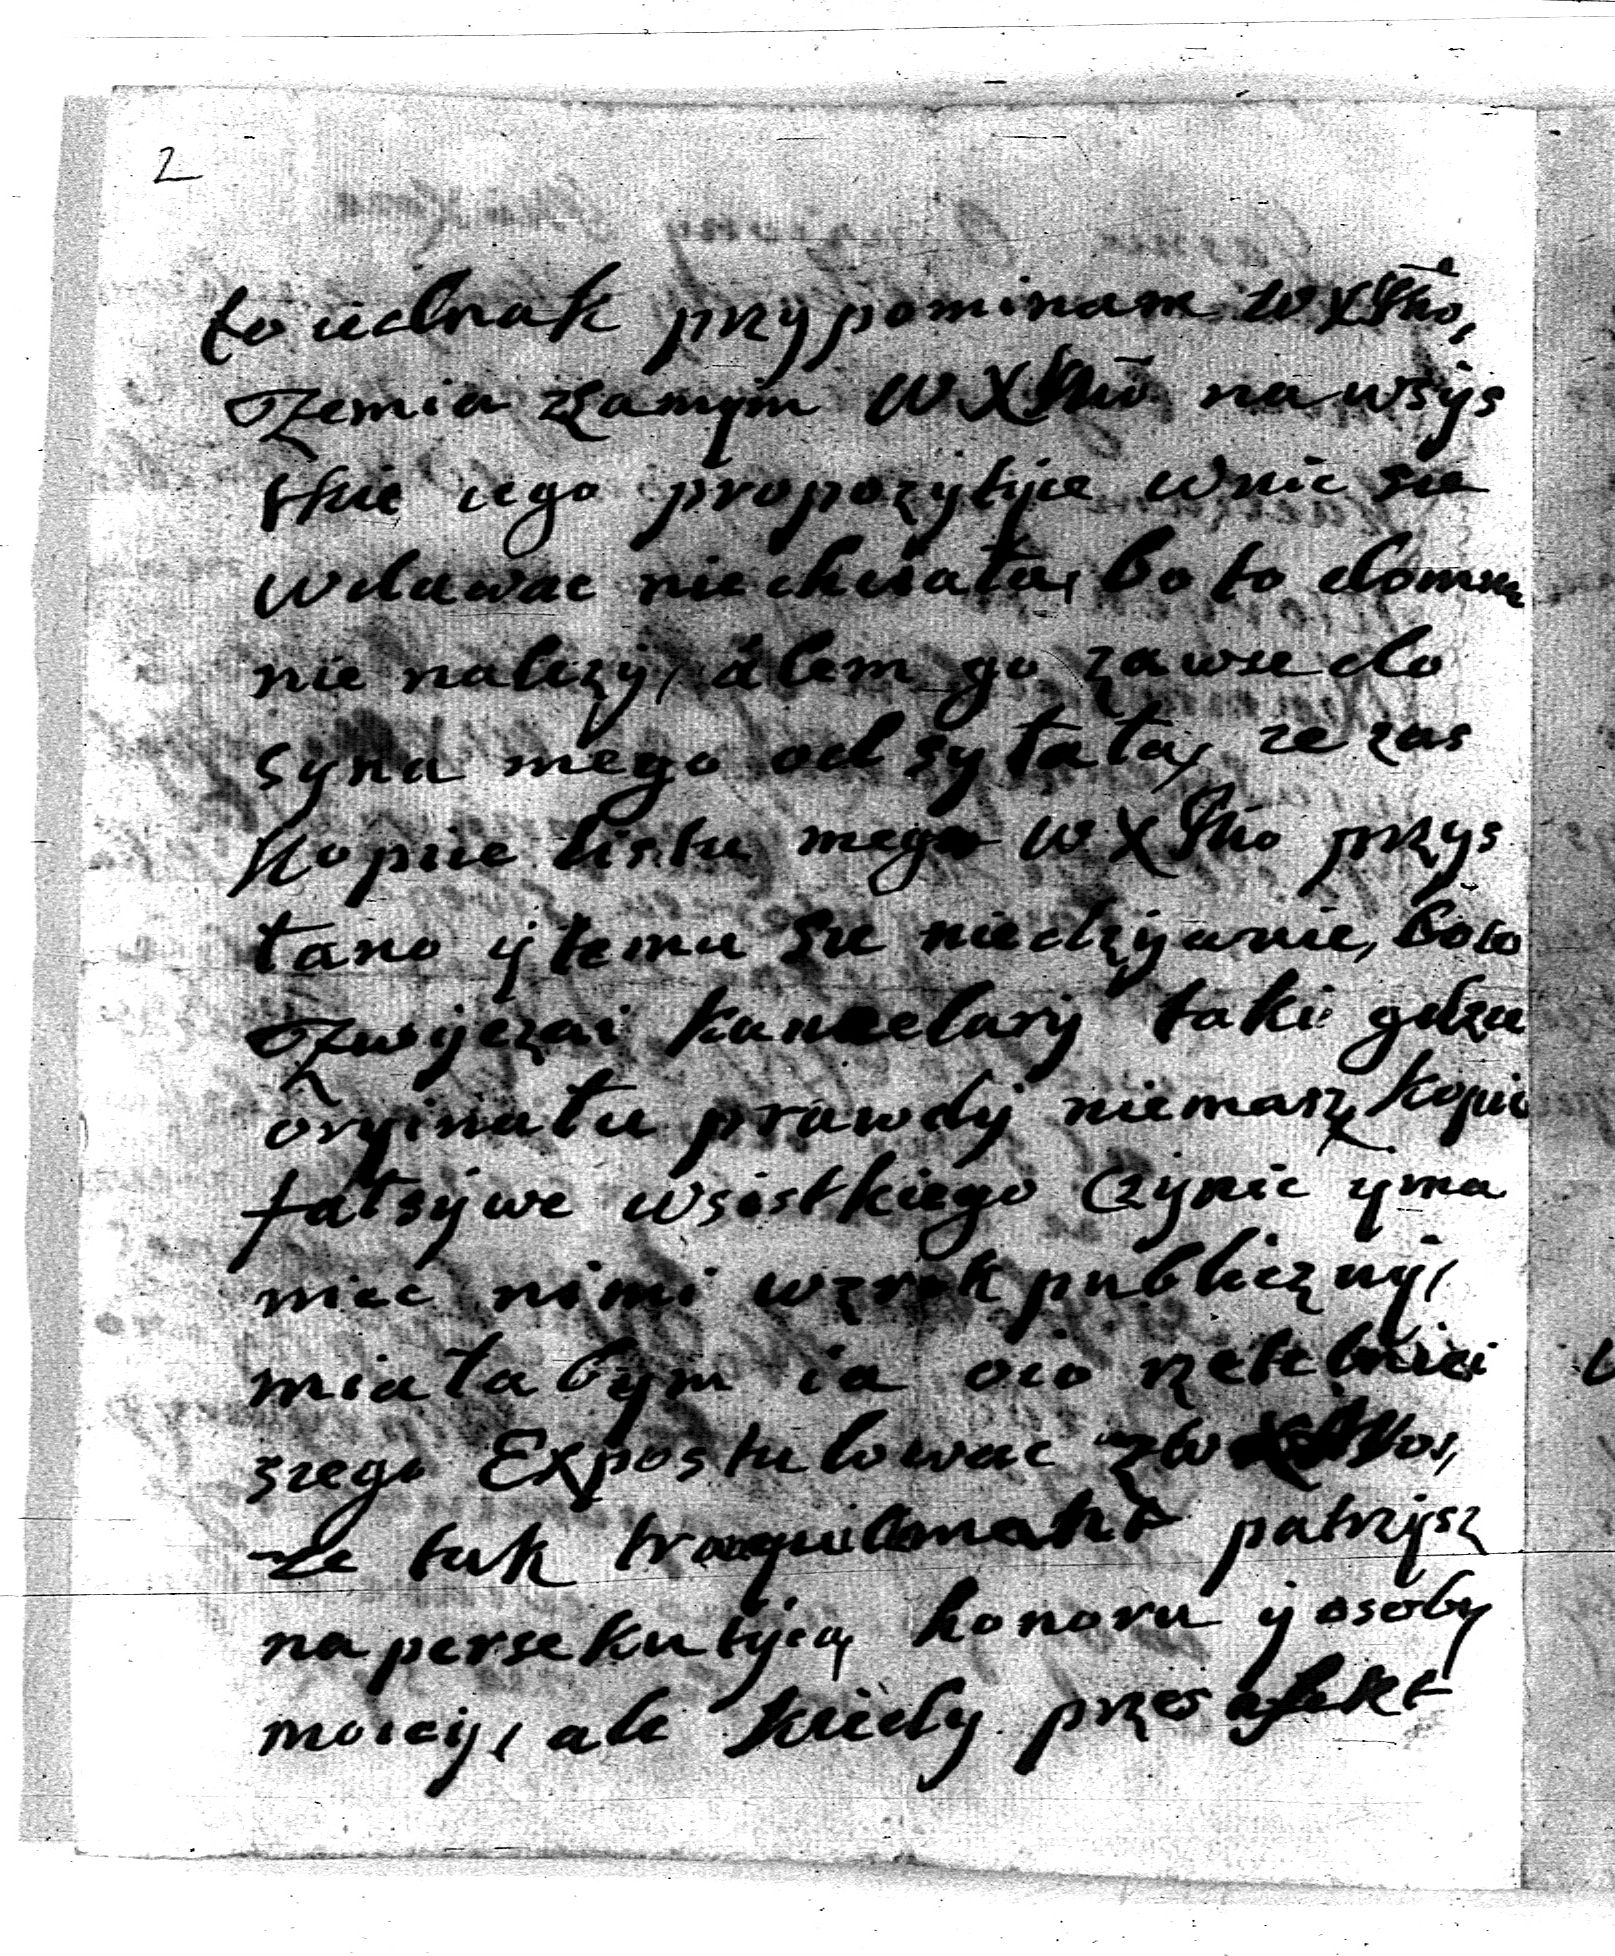 2
to iednak przypominam WXMo,
Zemia zsamÿm WXMo na wsÿs
tkie iego propozytÿie wnic sie
wdawac niechciała, bo to domnie
nie nalezÿ, alem go zawse do
syna mego odsyłała, ze zas
kopiie listu mego WXMo przys
łano ÿ temu sie niedzÿwuie, bo to
Zwÿczai kancelarÿ taki gdzie
orÿinału prawdÿ niemasz kopie
fałsÿwe wsistkiego czÿnic ÿ ma
miec nimi wzrok publicznÿ,
miałabÿm ia oco rzetelniei
szego Expostulowac z WXMos,
ze tak tranquilmente patrzÿsz
na persekutÿią honoru ÿ osoby
moieÿ, ale kiedy przes afekt